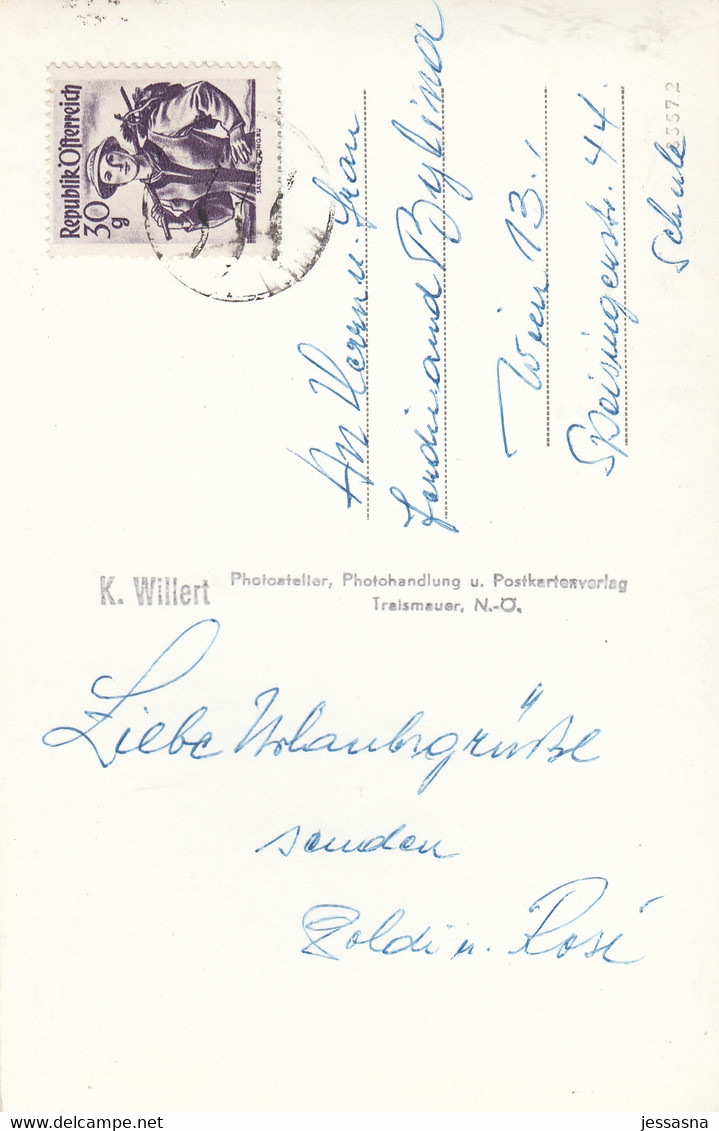 Republik Österreich
30
g
SALZBURG, LUNGAU
An Herrn u. Frau
Ferdinand Bylina
Wien 13.,
Speisingerstr. 44
Schule
K. Willert
Photoatelier, Photohandlung u. Postkartenverlag
Traismauer, N.-Ö.
Liebe Urlaubsgrüße
senden
Poldi u. Rosi
delcampe.net
jessasna